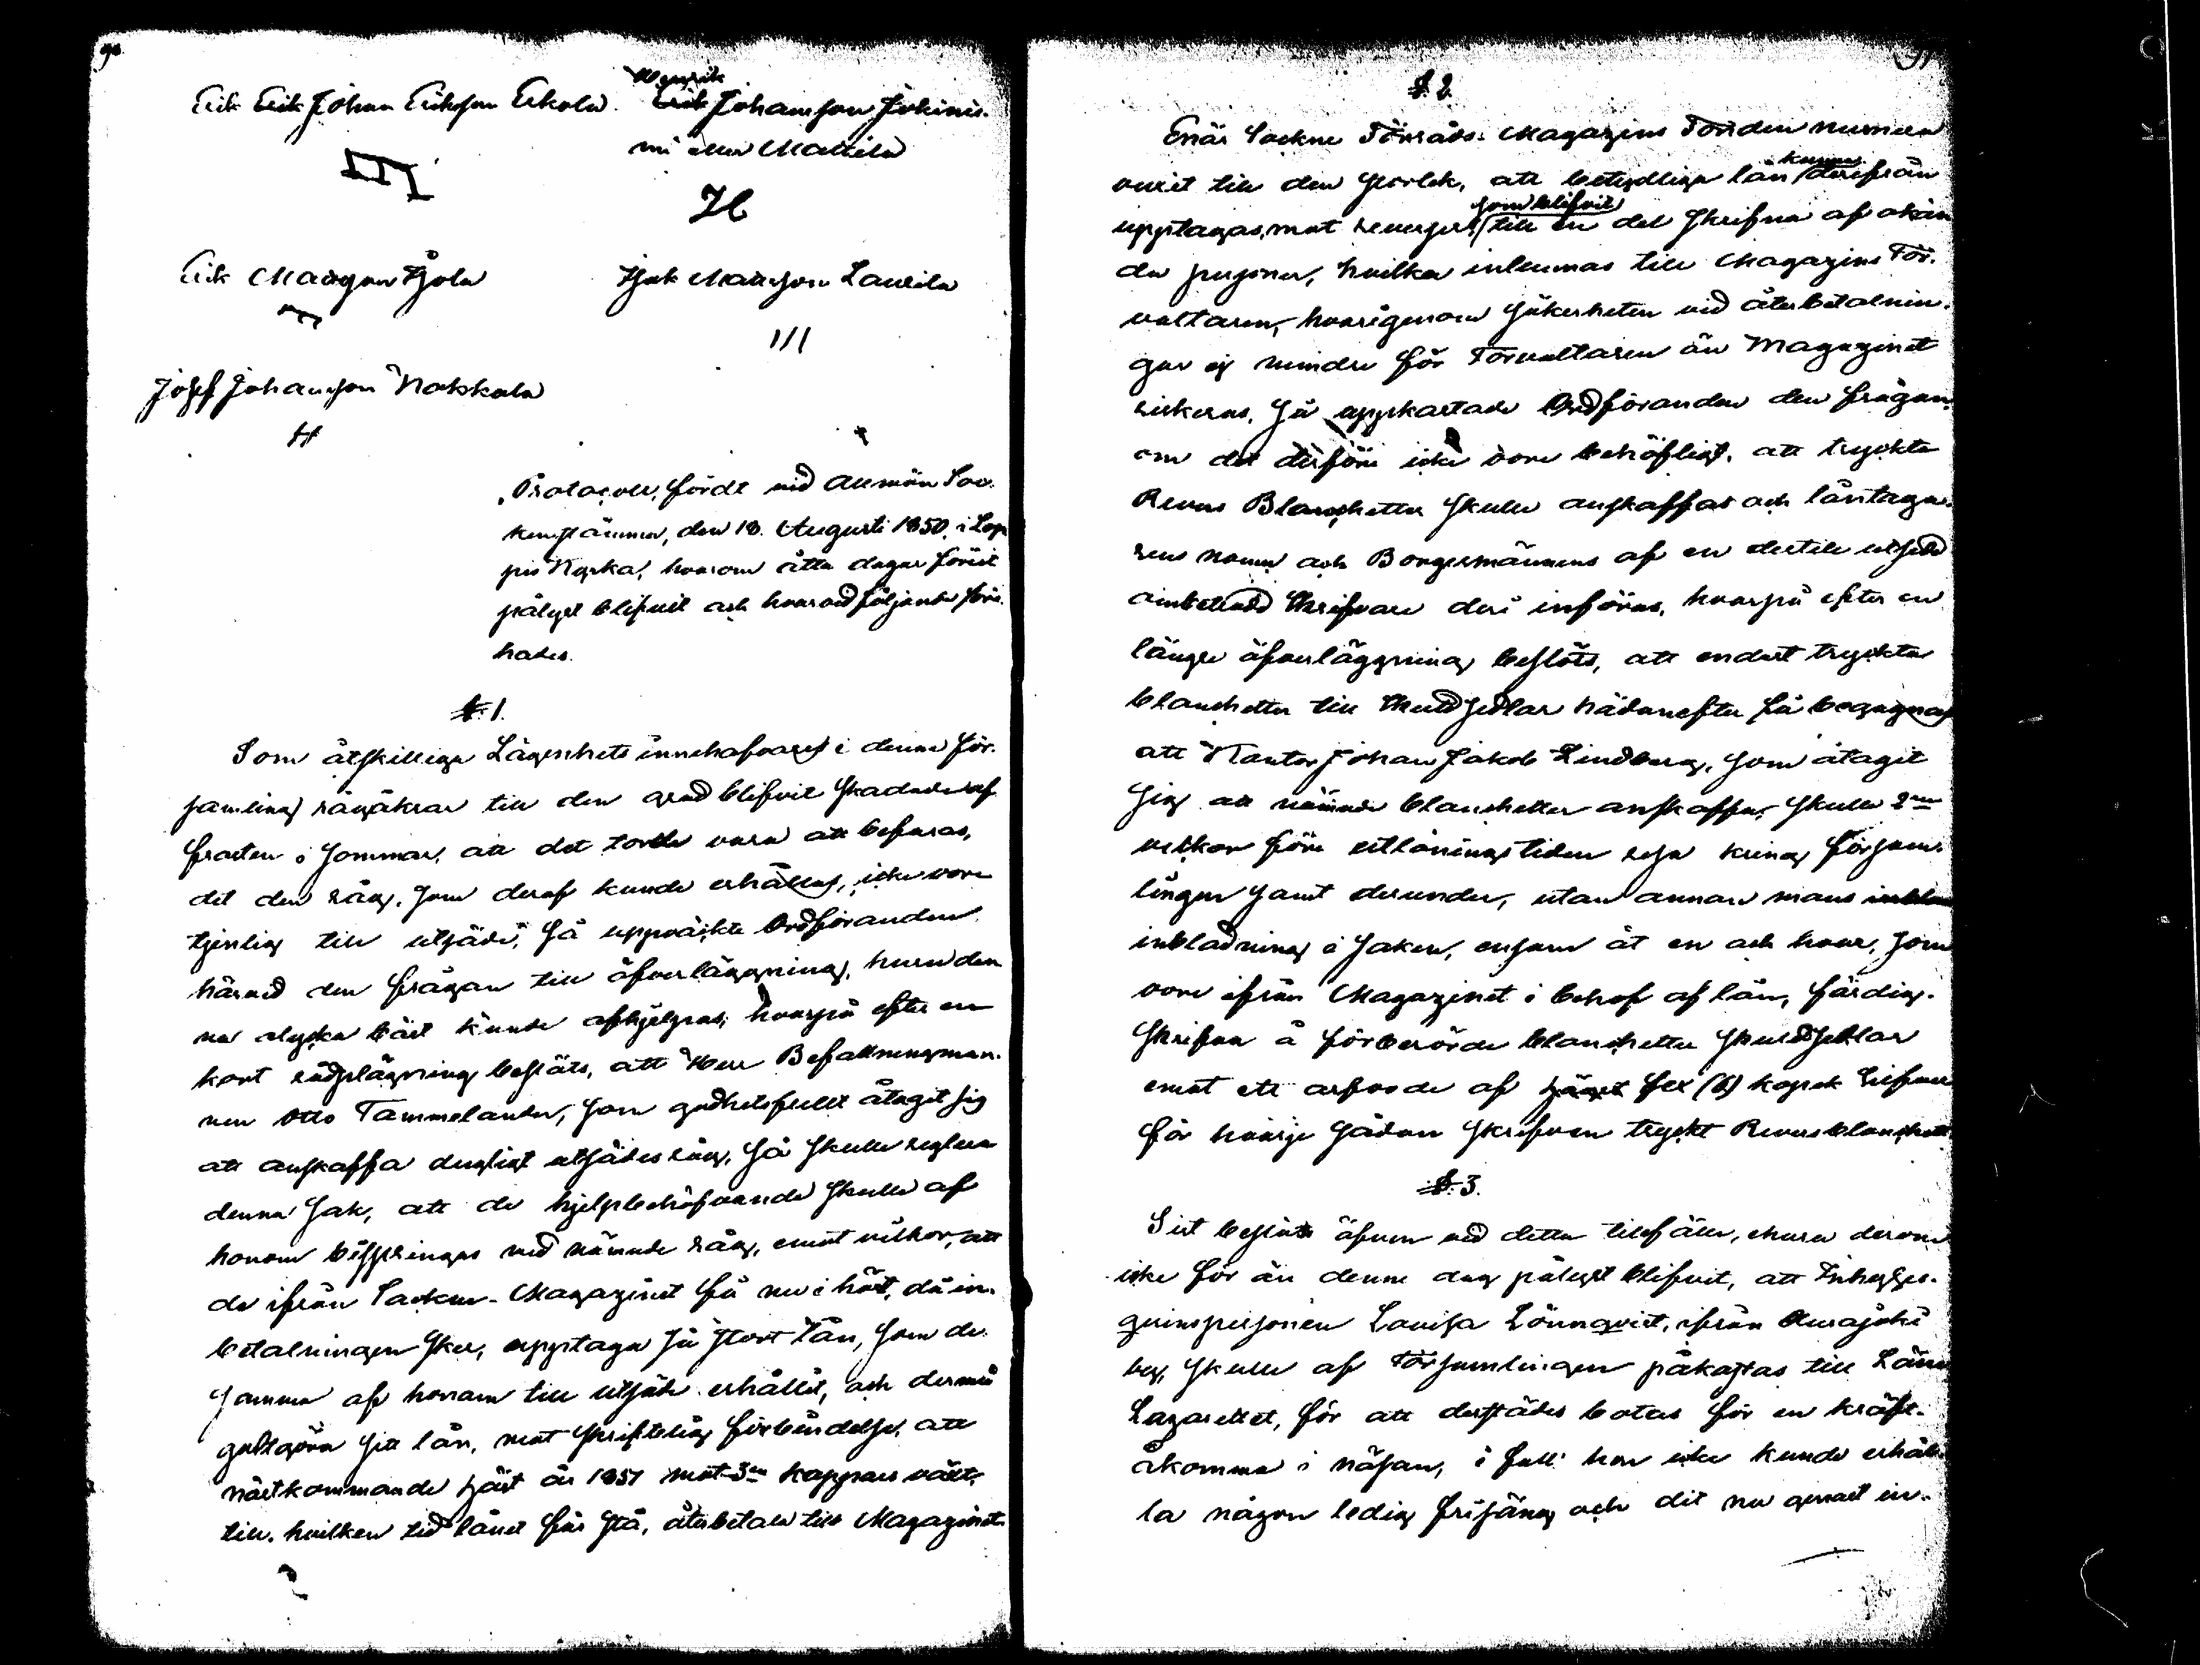 90
Erik Erik Johan Eriksson Erkola. Henrik Erik Johansson Jokinie-
mi eller Mattila
Erik Mattsson Ojola Isak Mattsson Laurila
III
Josef Johansson Nokkala
H
Protocoll, fördt vid allmän Soc-
kenstämma, den 18. Augusti 1850, i Lop-
pis Kyrka, hvarom åtta dagar förut
pålyst blifvit och hvarvid följande före-
hades.
§. 1.
Som åtskillige Lägenhets innehafvares i denna För-
samling rågåkrar till den grad blifvit skadade af
frosten i sommar, att det torde vara att befaras,
det den råg, som deraf kunde erhållas, icke vore
tjenlig till utsäde, så uppväckte Ordföranden
härvid den frågan till öfverläggning, huru den-
na olycka bäst kunde afhjelpas; hvarpå efter en
kort rådplägning beslöts, att Herr Befallningsman-
nen Otto Tammelander, som godhetsfullt åtagit sig
att anskaffa dugligt utsädes råg, så skulle reglera
denna sak, att de hjelpbehöfvande skulle af
honom bispringas med nämnde råg, emot vilkor, att
de ifrån Sockne-Magazinet få nu i höst, då in-
betalningen sker, upptaga så stort lån, som de
samma af honom till utsäde erhållit, och dermed
godtgöra sitt lån, mot skriftelig förbindelse, att
nästkommande höst år 1851 mot 3ne kappars växt,
till hvilken tid lånet får stå, återbetala till Magazinet.
91
§. 2.
Enär Sockne Förråds-Magazins Fonden numera
vuxit till den storlek, att betydliga lån kunna derifrån
upptagas, mot reverser, som blifvit till en del skrifna af okän-
da personer, hvilka inlemnas till Magazins För-
valtaren, hvarigenom säkerheten vid återbetalnin-
gar ej mindre för Förvaltaren än Magazinet
riskeras, så uppkastade Ordföranden den frågan,
om det derföre icke vore behöfligt, att tryckta
Revers Blanchetter skulle anskaffas och låntaga-
rens namn och Borgesmännens af en dertill utsedd
ambetsed Skrifvare deri införas, hvarpå efter en
längre öfverläggning beslöts, att endast tryckta
blanchetter till Skuldsedlar hädanefter få begagnas
att Kantor Johan Jakob Lindberg, som åtagit
sig att nämnde blanchetter anskaffa, skulle 2ne
veckor före utlåningstiden resa kring Försam-
lingen samt derunder, utan annan mans
inblandning i saken, ensam åt en och hvar, som
vore ifrån Magazinet i behof af lån, färdig-
skrifva å förberörde blanchetter Skuldsedlar
emot ett arfvode af sex (6) kopek Silfver
för hvarje sådan skrifven tryckt Revers blanchett.
§. 3.
Sist beslöts äfven vid detta tillfälle, ehuru derom
icke för än denne dag pålyst blifvit, att Inhyses-
qvinspersonen Lovisa Lönnqvist, ifrån Ourajoki
by, skulle af Församlingen påkostas till Läns
Lazarettet, för att derstädes botas för en kräft-
åkomma i näsan, i fall hon icke kunde erhål-
la någon ledig frisäng och dit nu genast in-